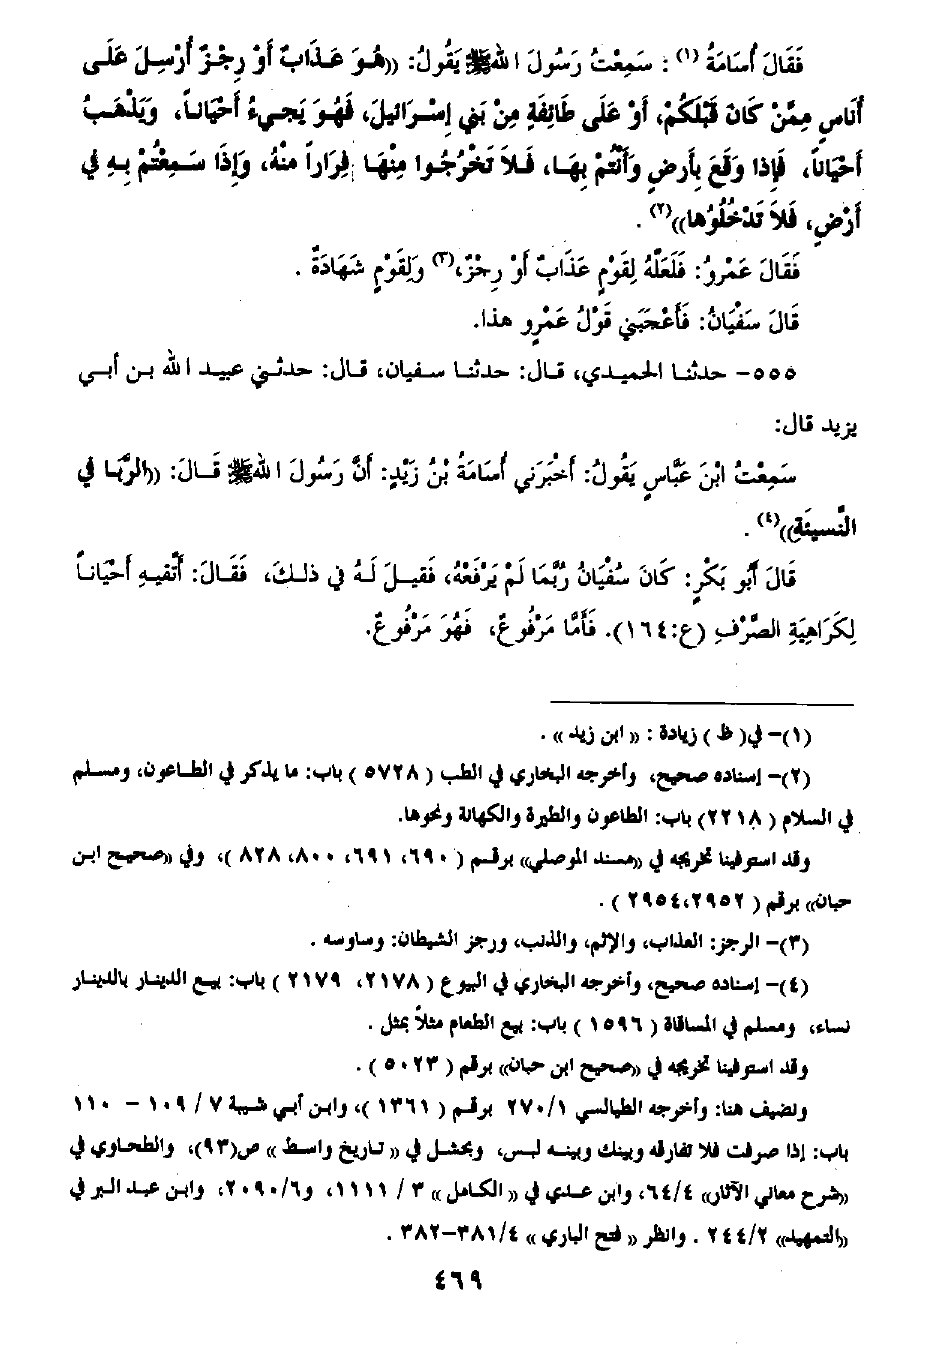 فَقَالَ أُسَامَةُ (١) : سَمِعْتُ رَسُولَ اللهِ ﷺ يَقُولُ: ((هُوَ عَذَابٌ أَوْ رِجْزٌ أُرْسِلَ عَلَى
أُنَاسٍ مِمَّنْ كَانَ قَبْلَكُمْ، أَوْ عَلَى طَائِفَةٍ مِنْ بَنِي إِسْرَائِيلَ، فَهُوَ يَجِيءُ أَحْيَاناً، وَيَذْهَبُ
أَحْيَاناً، فَإِذا وَقَعَ بِأَرضٍ وَأَنْتُمْ بِهَا، فَلاَ تَخْرُجُوا مِنْهَا فِرَاراً مِنْهُ، وَإِذَا سَمِعْتُمْ بِهِ فِي
أَرْضٍ، فَلاَ تَدْخُلُوْها))(٢) .
فَقَالَ عَمْرٌو: فَلَعَلَّهُ لِقَوْمٍ عَذَابٌ أَوْ رِجْزٌ،(٣) وَلِقَوْمٍ شَهَادَةٌ .
قَالَ سَفْيَانُ: فَأَعْجَبَنِي قَوْلُ عَمْرٍو هذا.
٥٥٥- حدثنا الحميدي، قال: حدثنا سفيان، قال: حدثني عبيد الله بن أبي
يزيد قال:
سَمِعْتُ ابْنَ عَبَّاسٍ يَقُولُ: أَخْبَرَنِي أُسَامَةُ بْنُ زَيْدٍ: أَنَّ رَسُولَ اللهِ ﷺ قَالَ: ((الرِّبَا فِي
النَّسِيئَةِ))(٤) .
قَالَ أَبُو بَكْرٍ: كَانَ سُفْيَانُ رُبَّمَا لَمْ يَرْفَعْهُ، فَقِيلَ لَهُ فِي ذلِكَ، فَقَالَ: أَتَّقِيهِ أَحْيَاناً
لِكَرَاهِيَةِ الصَّرْفِ (ع:١٦٤). فَأَمَّا مَرْفُوعٌ، فَهُوَ مَرْفُوعٌ.
(١)- في( ظ ) زيادة : (( ابن زيد )) .
(٢)- إسناده صحيح، وأخرجه البخاري في الطب ( ٥٧٢٨ ) باب: ما يذكر في الطاعون، ومسلم
في السلام ( ٢٢١٨ ) باب: الطاعون والطيرة والكهانة ونحوها.
وقد استوفينا تخريجه في ((مسند الموصلي)) برقم ( ٦٩٠، ٦٩١، ٨٠٠، ٨٢٨ )، وفي ((صحيح ابن
حبان)) برقم ( ٢٩٥٢،٢٩٥٤ ) .
(٣)- الرجز: العذاب، والإثم، والذنب، ورجز الشيطان: وساوسه .
(٤)- إسناده صحيح، وأخرجه البخاري في البيوع ( ٢١٧٨، ٢١٧٩ ) باب: بيع الدينار بالدينار
نساء، ومسلم في المساقاة ( ١٥٩٦ ) باب: بيع الطعام مثلاً بمثل .
وقد استوفينا تخريجه في ((صحيح ابن حبان)) برقم ( ٥٠٢٣ ) .
ونضيف هنا: وأخرجه الطيالسي ٢٧٠/١ برقم ( ١٣٦١ )، وابن أبي شيبة ٧ / ١٠٩ – ١١٠
باب: إذا صرفت فلا تفارقه وبينك وبينه لبس، وبحشل في (( تاريخ واسط )) ص(٩٣)، والطحاوي في
((شرح معاني الآثار)) ٦٤/٤، وابن عدي في (( الكامل )) ٣ / ١١١١، و٢٠٩٠/٦، وابن عبد البر في
((التمهيد)) ٢٤٤/٢ . وانظر (( فتح الباري )) ٣٨١/٤-٣٨٢ .
٤٦٩